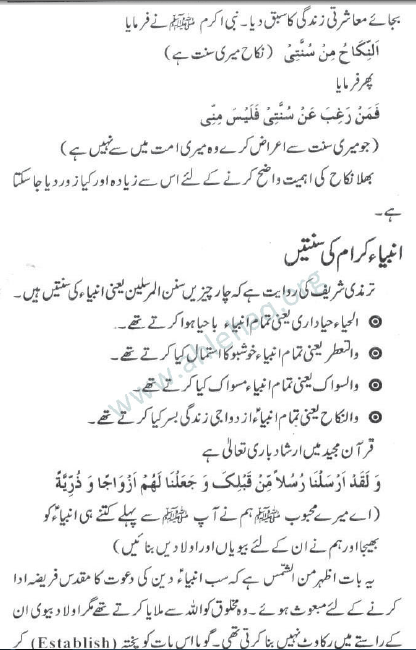 بجائے معاشرتی زندگی کا سبق دیا۔ نبی اکرم ﷺ نے فرمایا
اَلنِّکَاحُ مِنْ سُنَّتِیْ (نکاح میری سنت ہے)
پھر فرمایا
فَمَنْ رَغِبَ عَنْ سُنَّتِیْ فَلَیْسَ مِنِّی
(جو میری سنت سے اعراض کرے وہ میری امت میں سے نہیں ہے)
بھلا نکاح کی اہمیت واضح کرنے کے لئے اس سے زیادہ اور کیا زور دیا جا سکتا
ہے۔
انبیاء کرام کی سنتیں
ترمذی شریف کی روایت ہے کہ چار چیزیں سنن المرسلین یعنی انبیاء کی سنتیں ہیں۔
الحیاء حیاداری یعنی تمام انبیاء باحیا ہوا کرتے تھے۔
والتعطر یعنی تمام انبیاء خوشبو کا استعمال کیا کرتے تھے۔
والسواک یعنی تمام انبیاء مسواک کیا کرتے تھے۔
والنکاح یعنی تمام انبیاء ازدواجی زندگی بسر کیا کرتے تھے۔
قرآن مجید میں ارشاد باری تعالیٰ ہے
وَ لَقَدْ اَرْسَلْنَا رُسُلاً مِّنْ قَبْلِکَ وَ جَعَلْنَا لَهُمْ اَزْوَاجًا وَّ ذُرِّیَّةً
(اے میرے محبوب ﷺ ہم نے آپ ﷺ سے پہلے کتنے ہی انبیاء کو
بھیجا اور ہم نے ان کے لئے بیویاں اور اولادیں بنائیں)
یہ بات اظہر من الشمس ہے کہ سب انبیاء دین کی دعوت کا مقدس فریضہ ادا
کرنے کے لئے مبعوث ہوئے۔ وہ مخلوق کو اللہ سے ملایا کرتے تھے مگر اولاد بیوی ان
کے راستے میں رکاوٹ نہیں بنا کرتی تھی۔ گویا اس بات کو پختہ (Establish) کر
www.ahlehaq.org